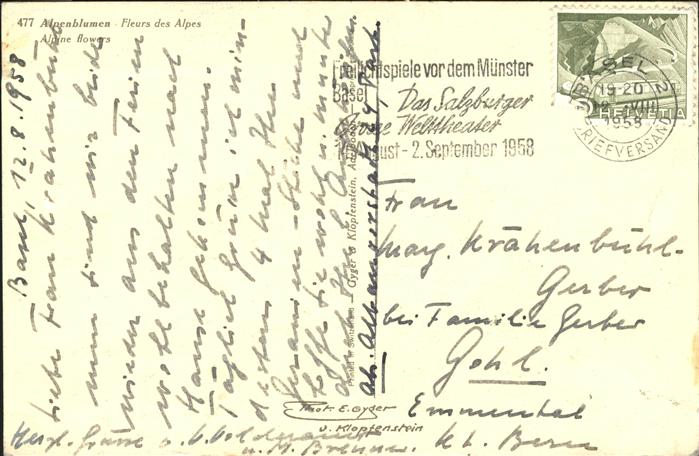 477 Alpenblumen · Fleurs des Alpes
Alpine flowers
Freilichtspiele vor dem Münster
Basel Das Salzburger
Grosse Welttheater
August - 2. September 1958
BASEL 2
19-20
12. VIII
1958
BRIEFVERSAND
HELVETIA
Basel, 12.8.1958
Liebe Frau Krähenbühl
nun sind wir beide
wieder aus den Ferien
wohlbehalten nach
Hause gekommen.
Täglich grüsse ich min-
destens 4 mal Ihre
Geranien-Stöcke und
hoffe Sie wohl & munter
Frau
Marg. Krähenbühl-
Gerber
bei Familie Gerber
Gohl.
Emmental
Kt. Bern
Phot. E. Gyger
u. Klopfenstein
Printed in Switzerland — Gyger & Klopfenstein, Adelboden
Herzl. Grüsse